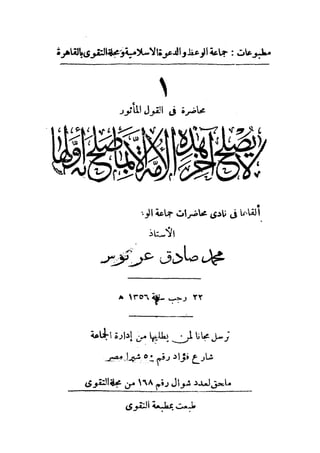 مطبوعات : جماعة الوعظ والدعوة الاسلامية ومجلة التقوى بالقاهرة
١
محاضرة فى القول المأثور
لا يصلح آخر هذه الأمة إلا بما صلح به أولها
ألقاها فى نادى محاضرات جماعة الو
الأستاذ
محمد صادق عرنوس
٢٢ رجب سنة ١٣٥٦ هـ
ترسل مجانا لمن يطلبها من إدارة الجماعة
شارع فؤاد رقم ٥٠ شبرا مصر
ملحق لعدد شوال رقم ١٦٨ من مجلة التقوى
طبعت بمطبعة التقوى